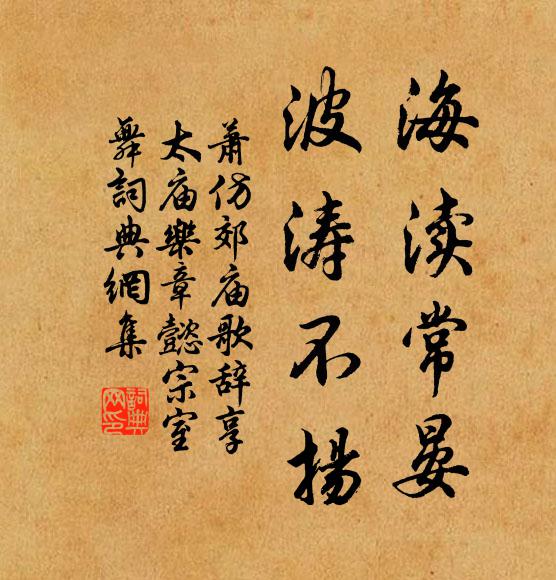 海渎常晏
波涛不揚
萧仿郊庙歌辞享
太庙樂章懿宗室
舞詞典網集
詞典
网印